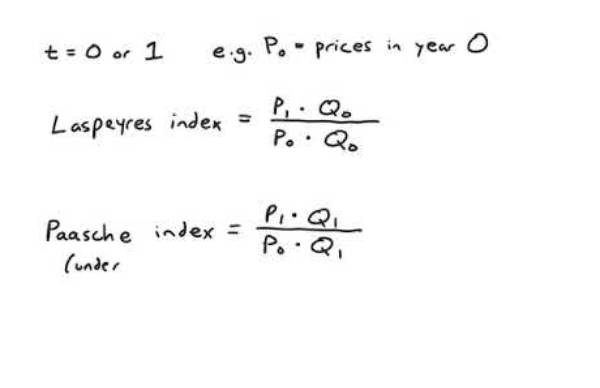 t = 0 or 1 e.g. P₀ = prices in year 0
Laspeyres index = P₁ · Q₀ / P₀ · Q₀
Paasche index = P₁ · Q₁ / P₀ · Q₁
(under